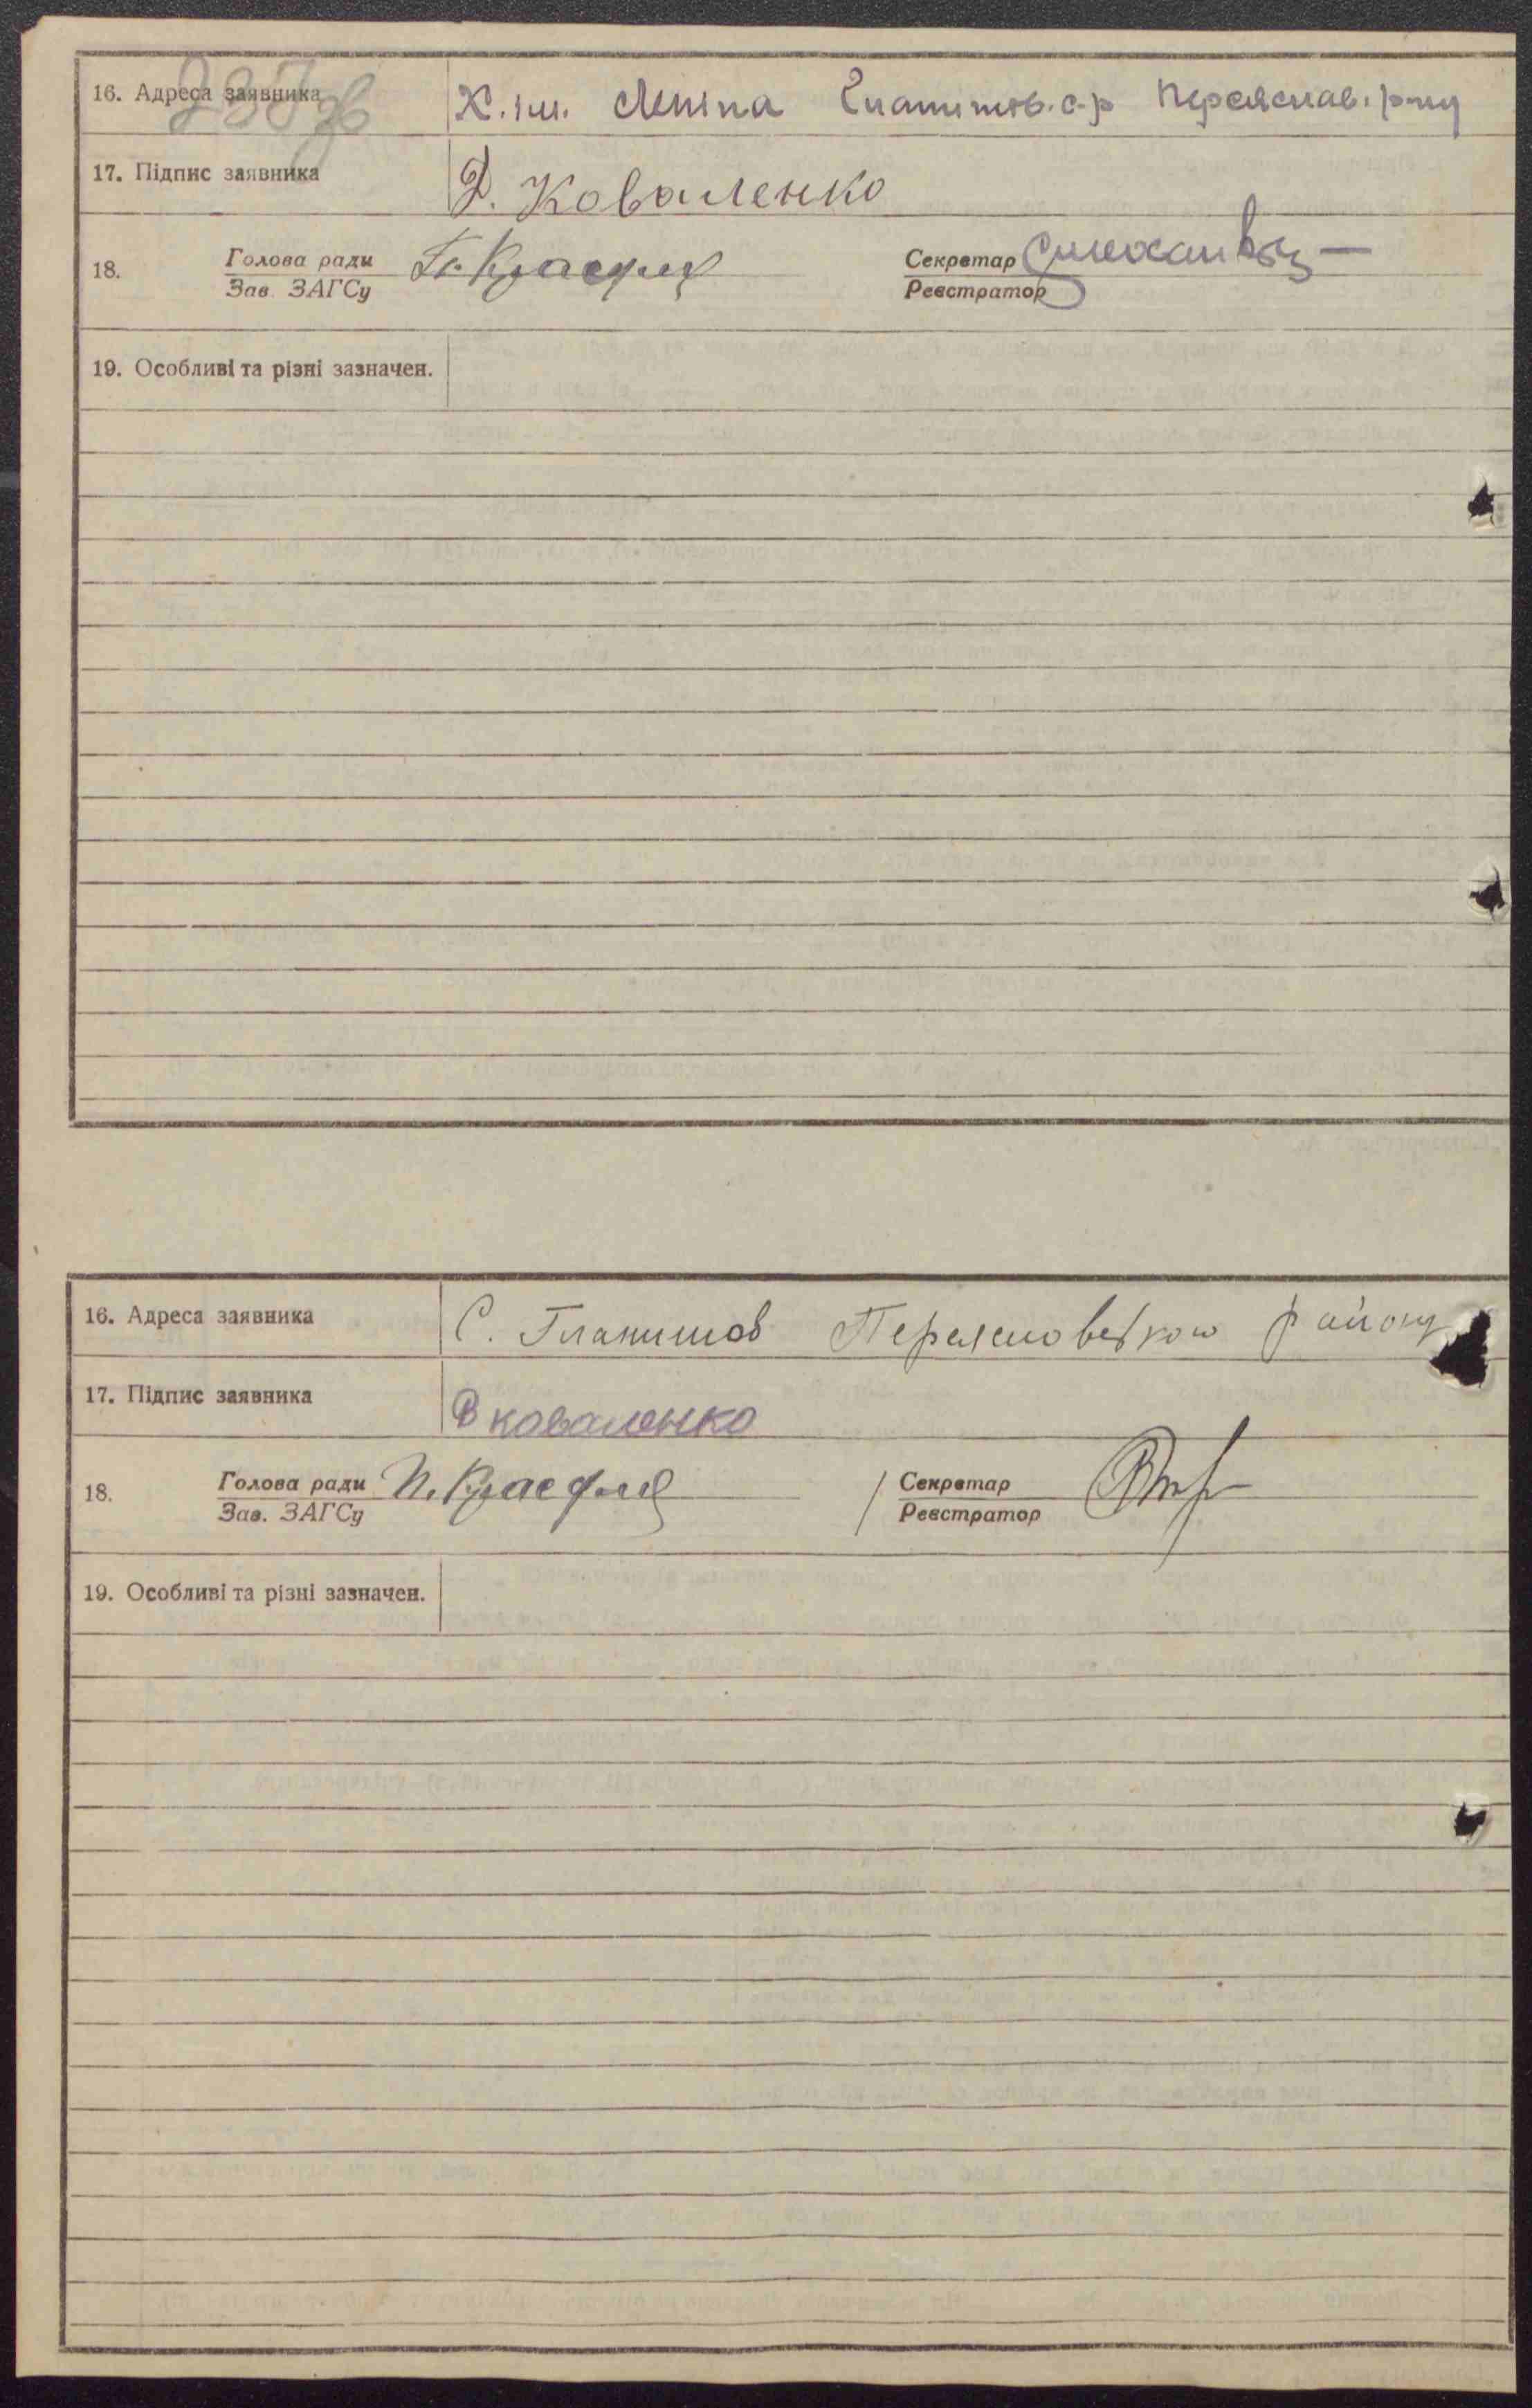 16. Адреса заявника Х. ім. Леніна Гланишів. с-р Переяслав. р-ну
17. Підпис заявника Д. Коваленко
18. Голова ради Секретар
Зав. ЗАГСу Реєстратор
19. Особливі та різні зазначен.
16. Адреса заявника С. Гланишов Переясловського району
17. Підпис заявника В Коваленко
18. Голова ради Секретар
Зав. ЗАГСу Реєстратор
19. Особливі та різні зазначен.